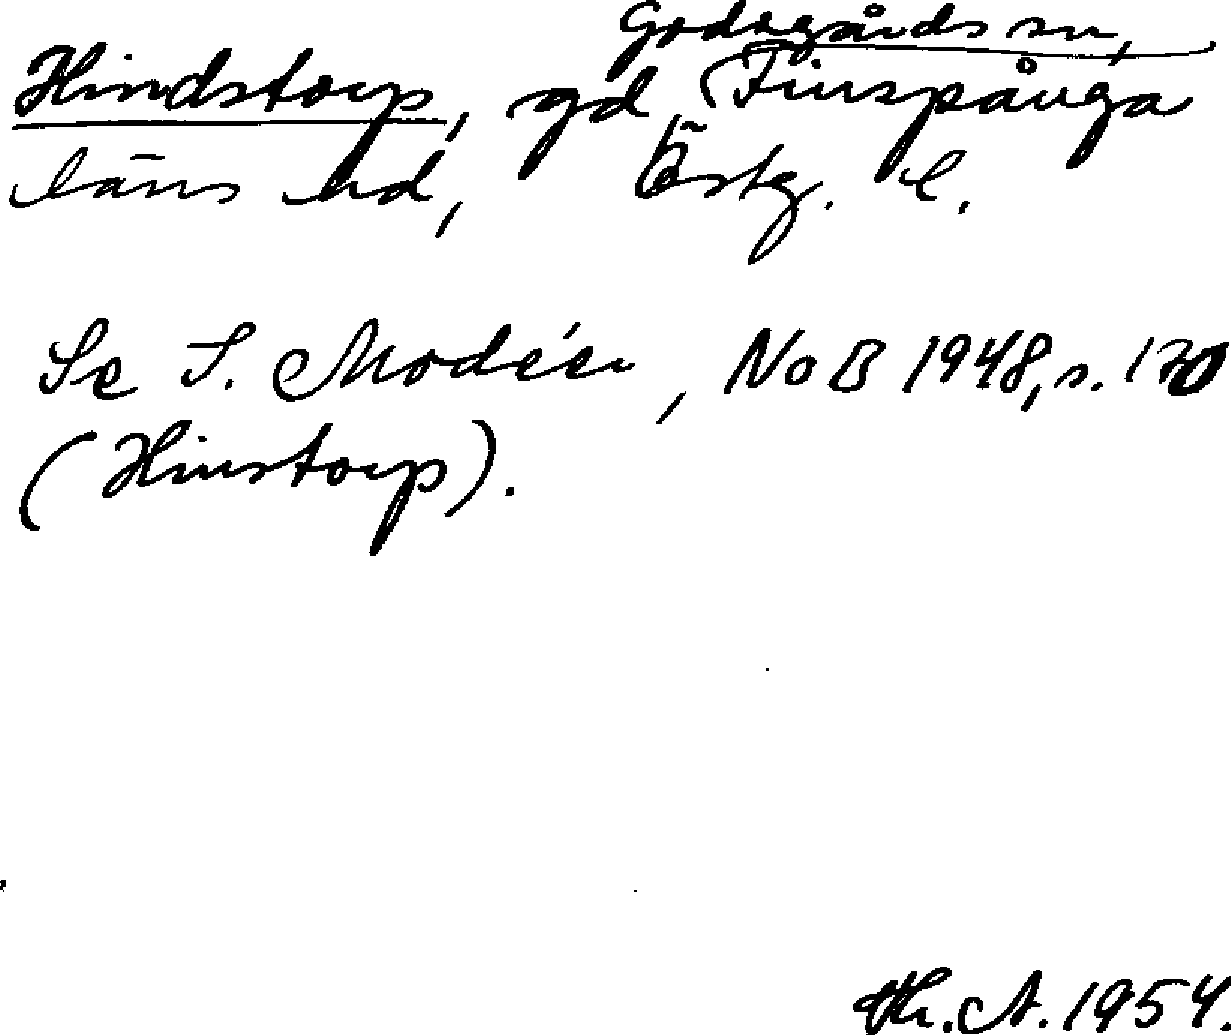 Godegårds sn,
Hindstorp, gd, Finspånga
läns hd, Östg. l.
Se I. Modéer, NoB 1948, s. 170
(Hinstorp).
Th. A. 1954.